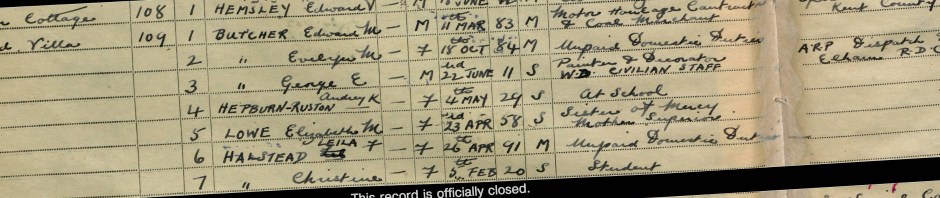 Cottage 108 1 HEMSLEY Edward V - M JUNE Motor Haulage Contractor & Coal Merchant Kent County
Villa 109 1 BUTCHER Edward M - M 11th MAR 83 M
2 " Evelyn M - F 18th OCT 84 M Unpaid Domestic Duties ARP Dispatch Elham R.D.C
3 " George E - M 22nd JUNE 11 S Painter & Decorator W.D. CIVILIAN STAFF
4 HEPBURN-RUSTON Audrey K - F 4th MAY 29 S At School
5 LOWE Elizabeth M - F 23rd APR 58 S Sister of Mercy Mother Superior
6 HALSTEAD LEILA F - F 26th APR 91 M Unpaid Domestic Duties
7 " Christine - F 5th FEB 20 S Student
This record is officially closed.